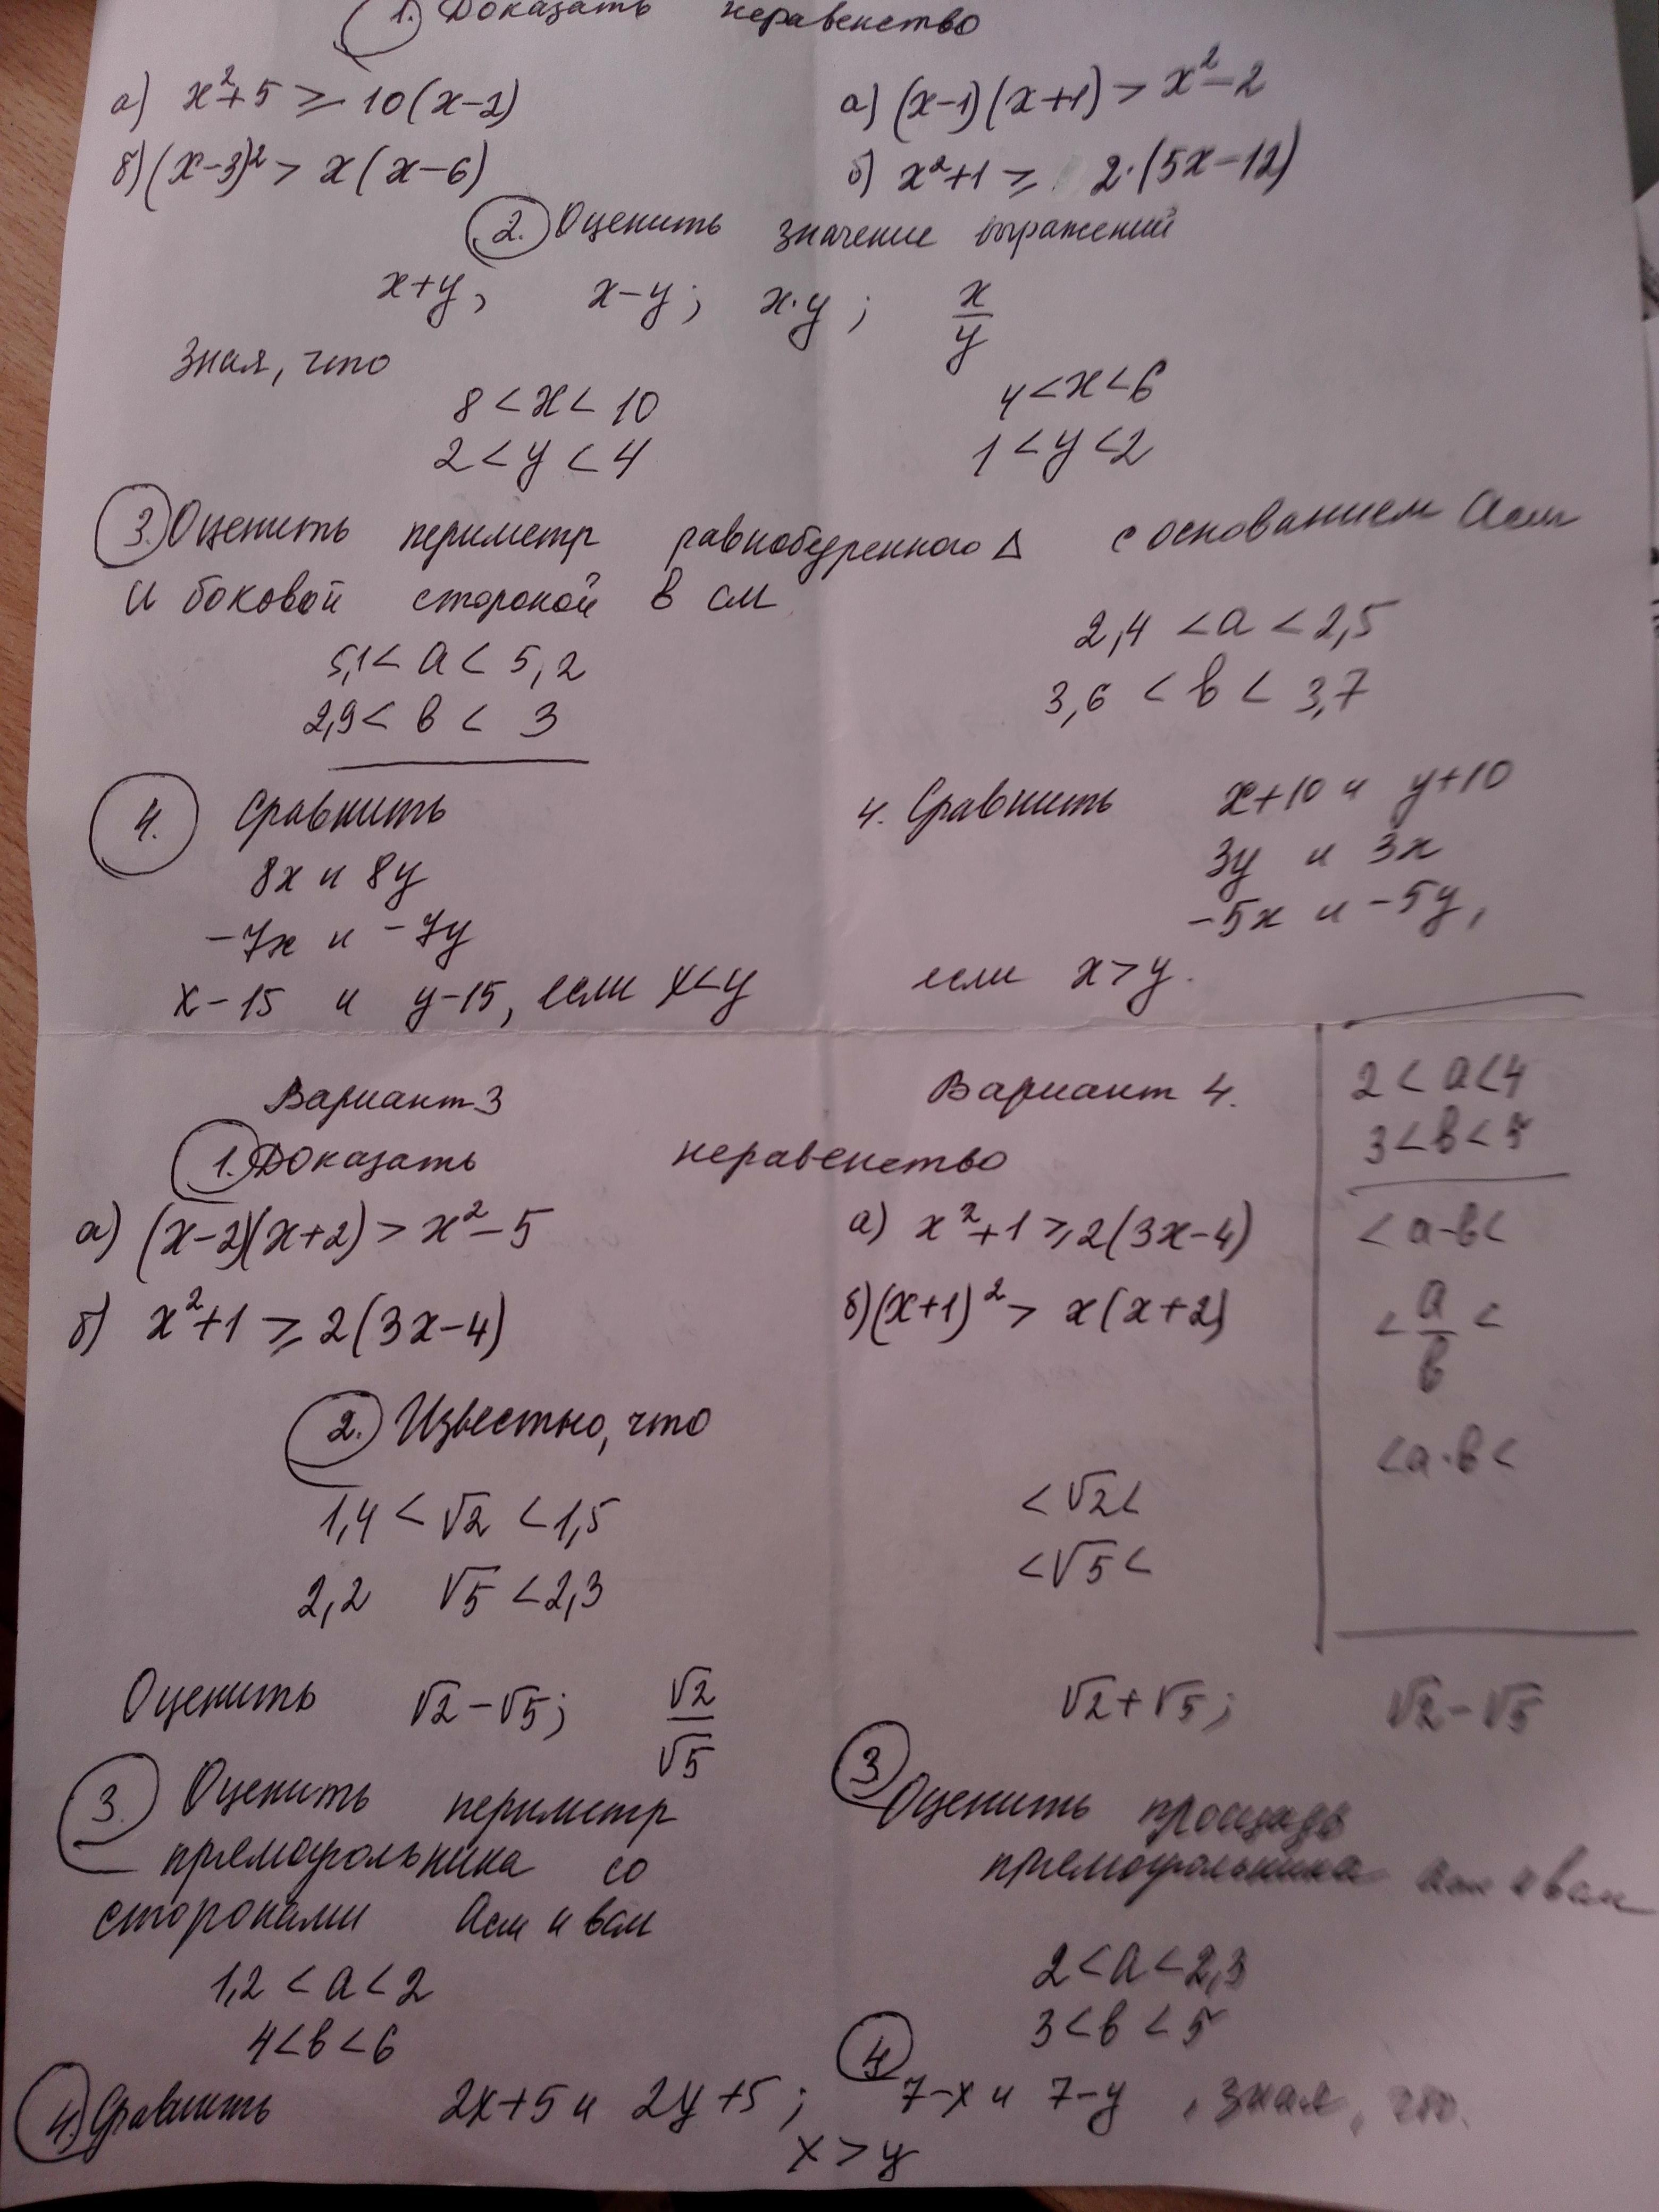 1. Доказать неравенство
а) x²+5 ≥ 10(x-2)
а) (x-1)(x+1) > x²-2
б) (x-3)² > x(x-6)
б) x²+1 ≥ 2·(5x-12)
2. Оценить значение выражений
x+y, x-y; x·y; x/y
Зная, что
8 < x < 10
4 < x < 6
2 < y < 4
1 < y < 2
3. Оценить периметр равнобедренного Δ с основанием a см
и боковой стороной в см
5,1 < a < 5,2
2,4 < a < 2,5
2,9 < в < 3
3,6 < в < 3,7
4. Сравнить
8x и 8y
-7x и -7y
x-15 и y-15, если x<y
4. Сравнить x+10 и y+10
3y и 3x
-5x и -5y,
если x>y.
Вариант 3
Вариант 4.
1. Доказать неравенство
а) (x-2)(x+2) > x²-5
а) x²+1 ≥ 2(3x-4)
б) x²+1 ≥ 2(3x-4)
б) (x+1)² > x(x+2)
2 < a < 4
3 < в < 5
< a-в <
< a/в <
< a·в <
2. Известно, что
1,4 < √2 < 1,5
< √2 <
2,2 √5 < 2,3
< √5 <
Оценить √2-√5; √2/√5
√2+√5; √2-√5
3. Оценить периметр
прямоугольника со
сторонами a см и в см
1,2 < a < 2
4 < в < 6
3 Оценить площадь
прямоугольника a см и в см
2 < a < 2,3
3 < в < 5
4. Сравнить 2x+5 и 2y+5;
4 7-x и 7-y, зная, что.
x > y